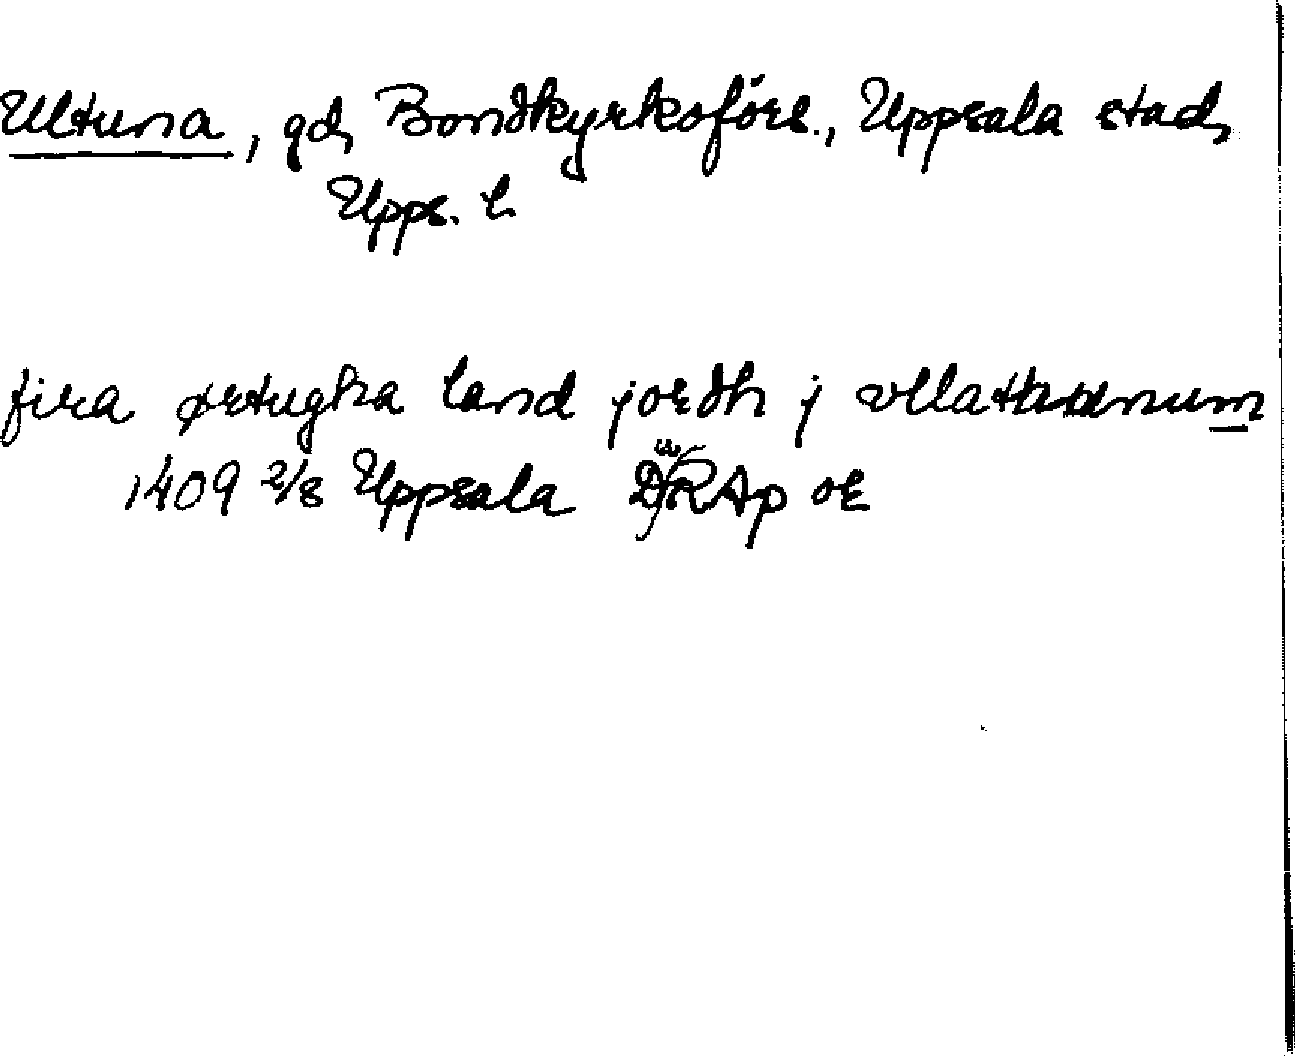 Ultuna, gd, Bondkyrkoförs., Uppsala stad,
Upps. l.
fira ørtugha land jordh j vllathunum
1409 2/8 Uppsala RAp or